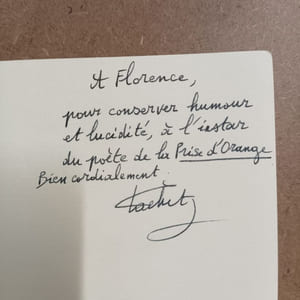 A Florence,
pour conserver humour
et lucidité, à l'instar
du poète de la Prise d'Orange
Bien cordialement.